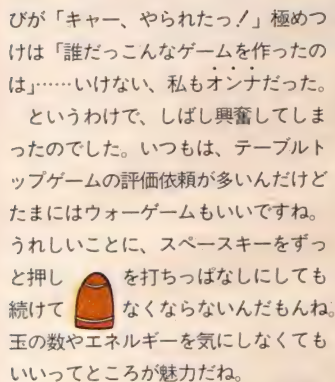 びが「キャー、やられたっ!」極めつ
けは「誰だっこんなゲームを作ったの
は」……いけない、私もオンナだった。
というわけで、しばし興奮してしま
ったのでした。いつもは、テーブルト
ップゲームの評価依頼が多いんだけど
たまにはウォーゲームもいいですね。
うれしいことに、スペースキーをずっ
と押し を打ちっぱなしにしても
続けて なくならないんだもんね。
玉の数やエネルギーを気にしなくても
いいってところが魅力だね。